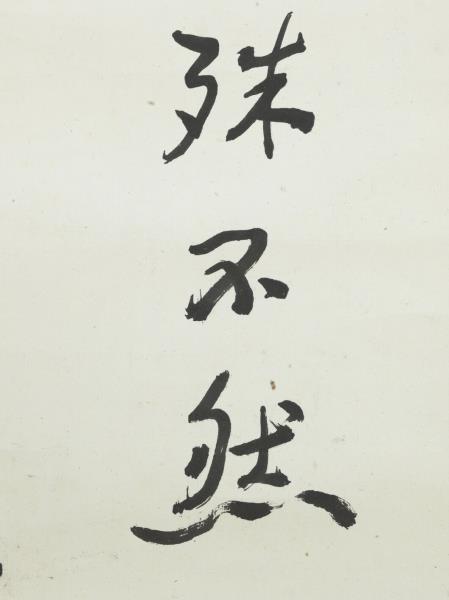 殊不然